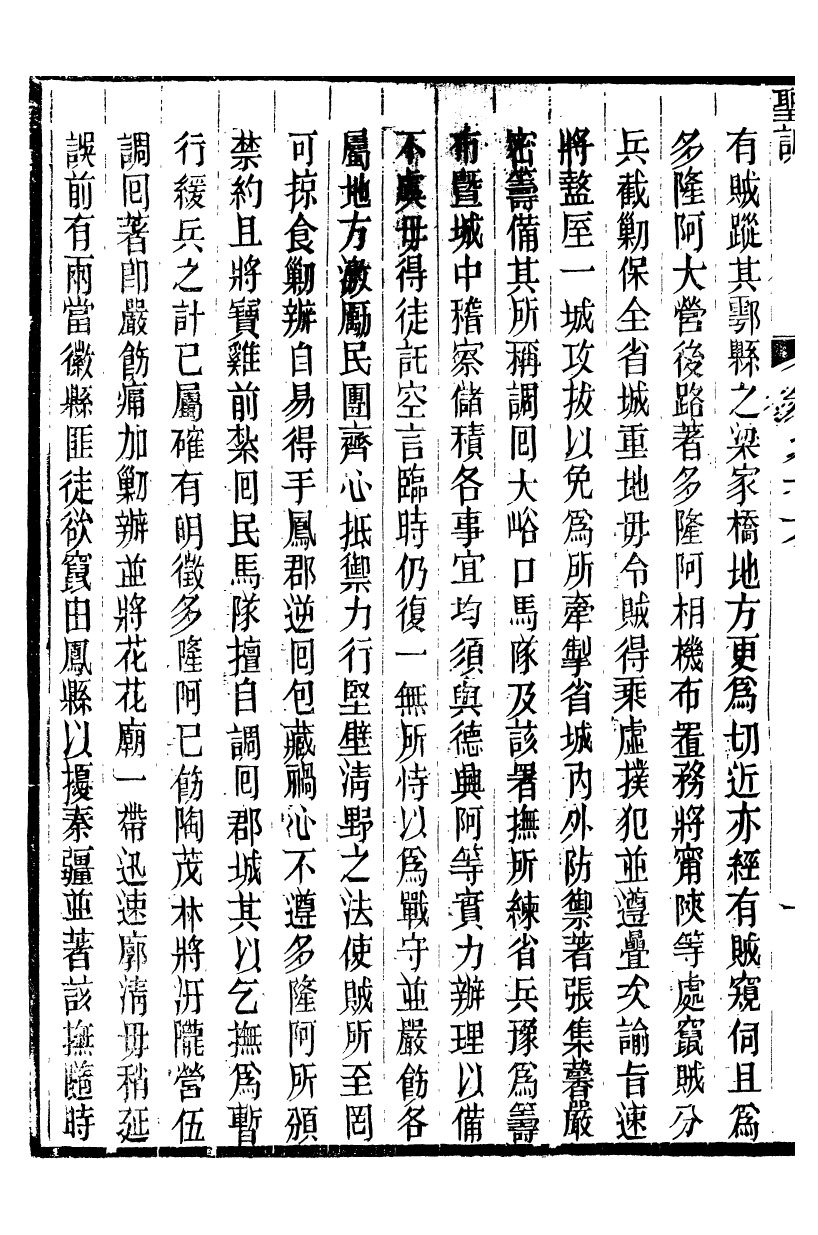 聖訓
有賊蹤其鄠縣之梁家橋地方更爲切近亦經有賊窺伺且爲
多隆阿大營後路著多隆阿相機布置務將甯陝等處竄賊分
兵截勦保全省城重地毋令賊得乘虛撲犯並遵疊次諭旨速
將盩厔一城攻拔以免爲所牽掣省城內外防禦著張集馨嚴
密籌備其所稱調回大峪口馬隊及該署撫所練省兵豫爲籌
布暨城中稽察儲積各事宜均須與德興阿等實力辦理以備
不虞毋得徒託空言臨時仍復一無所恃以爲戰守並嚴飭各
屬地方激勵民團齊心抵禦力行堅壁淸野之法使賊所至罔
可掠食勦辦自易得手鳳郡逆回包藏禍心不遵多隆阿所頒
禁約且將寶雞前紮回民馬隊擅自調回郡城其以乞撫爲暫
行緩兵之計已屬確有明徵多隆阿已飭陶茂林將汧隴營伍
調回著卽嚴飭痛加勦辦並將花花廟一帶迅速廓淸毋稍延
誤前有兩當徽縣匪徒欲竄由鳳縣以擾秦疆並著該撫隨時